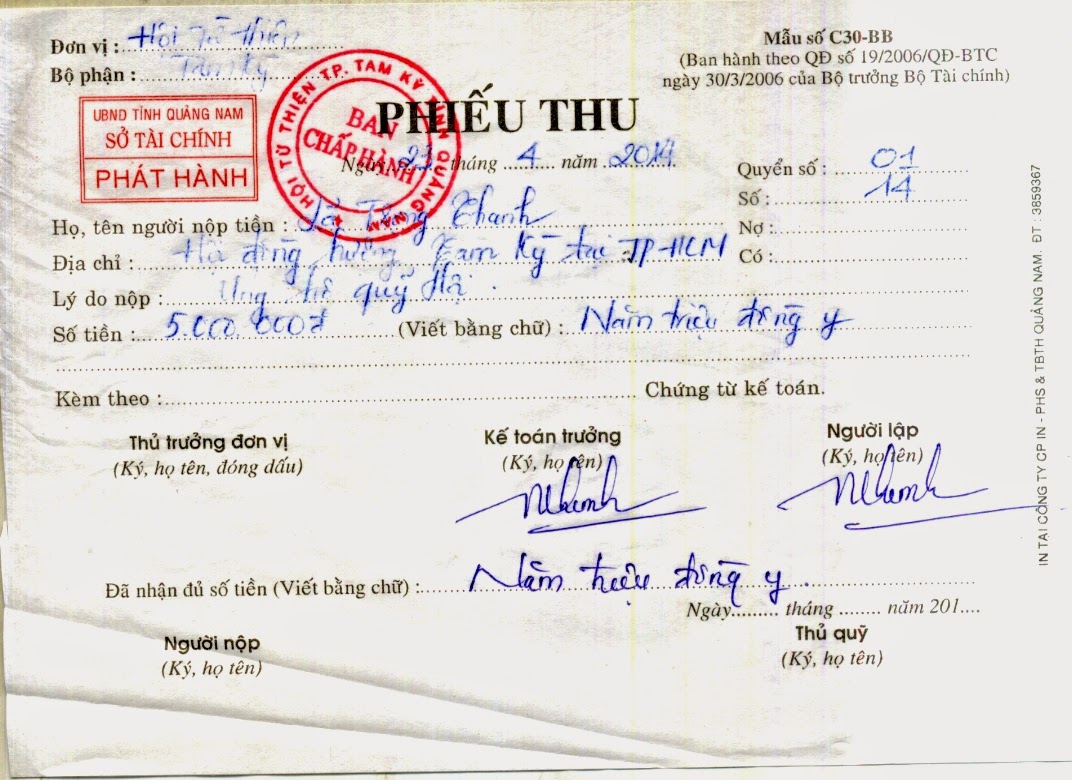 Đơn vị : Hội Từ Thiện
Bộ phận : Tam Kỳ
Mẫu số C30-BB
(Ban hành theo QĐ số 19/2006/QĐ-BTC
ngày 30/3/2006 của Bộ trưởng Bộ Tài chính)
UBND TỈNH QUẢNG NAM
SỞ TÀI CHÍNH
PHÁT HÀNH
HỘI TỪ THIỆN TP. TAM KỲ TỈNH QUẢNG NAM
BAN
CHẤP HÀNH
PHIẾU THU
Ngày 23 tháng 4 năm 2014
Quyển số : 01
Số : 14
Họ, tên người nộp tiền : Trung Thanh
Nợ :
Địa chỉ : Hội đồng hương Tam Kỳ tại TP-HCM
Có :
Lý do nộp : Ủng hộ quỹ Hội.
Số tiền : 5.000.000đ (Viết bằng chữ) : Năm triệu đồng y
Kèm theo : Chứng từ kế toán.
Thủ trưởng đơn vị
(Ký, họ tên, đóng dấu)
Kế toán trưởng
(Ký, họ tên)
Người lập
(Ký, họ tên)
Đã nhận đủ số tiền (Viết bằng chữ) : Năm triệu đồng y.
Ngày......... tháng ........ năm 201....
Người nộp
(Ký, họ tên)
Thủ quỹ
(Ký, họ tên)
IN TẠI CÔNG TY CP IN - PHS & TBTH QUẢNG NAM. ĐT : 3859367